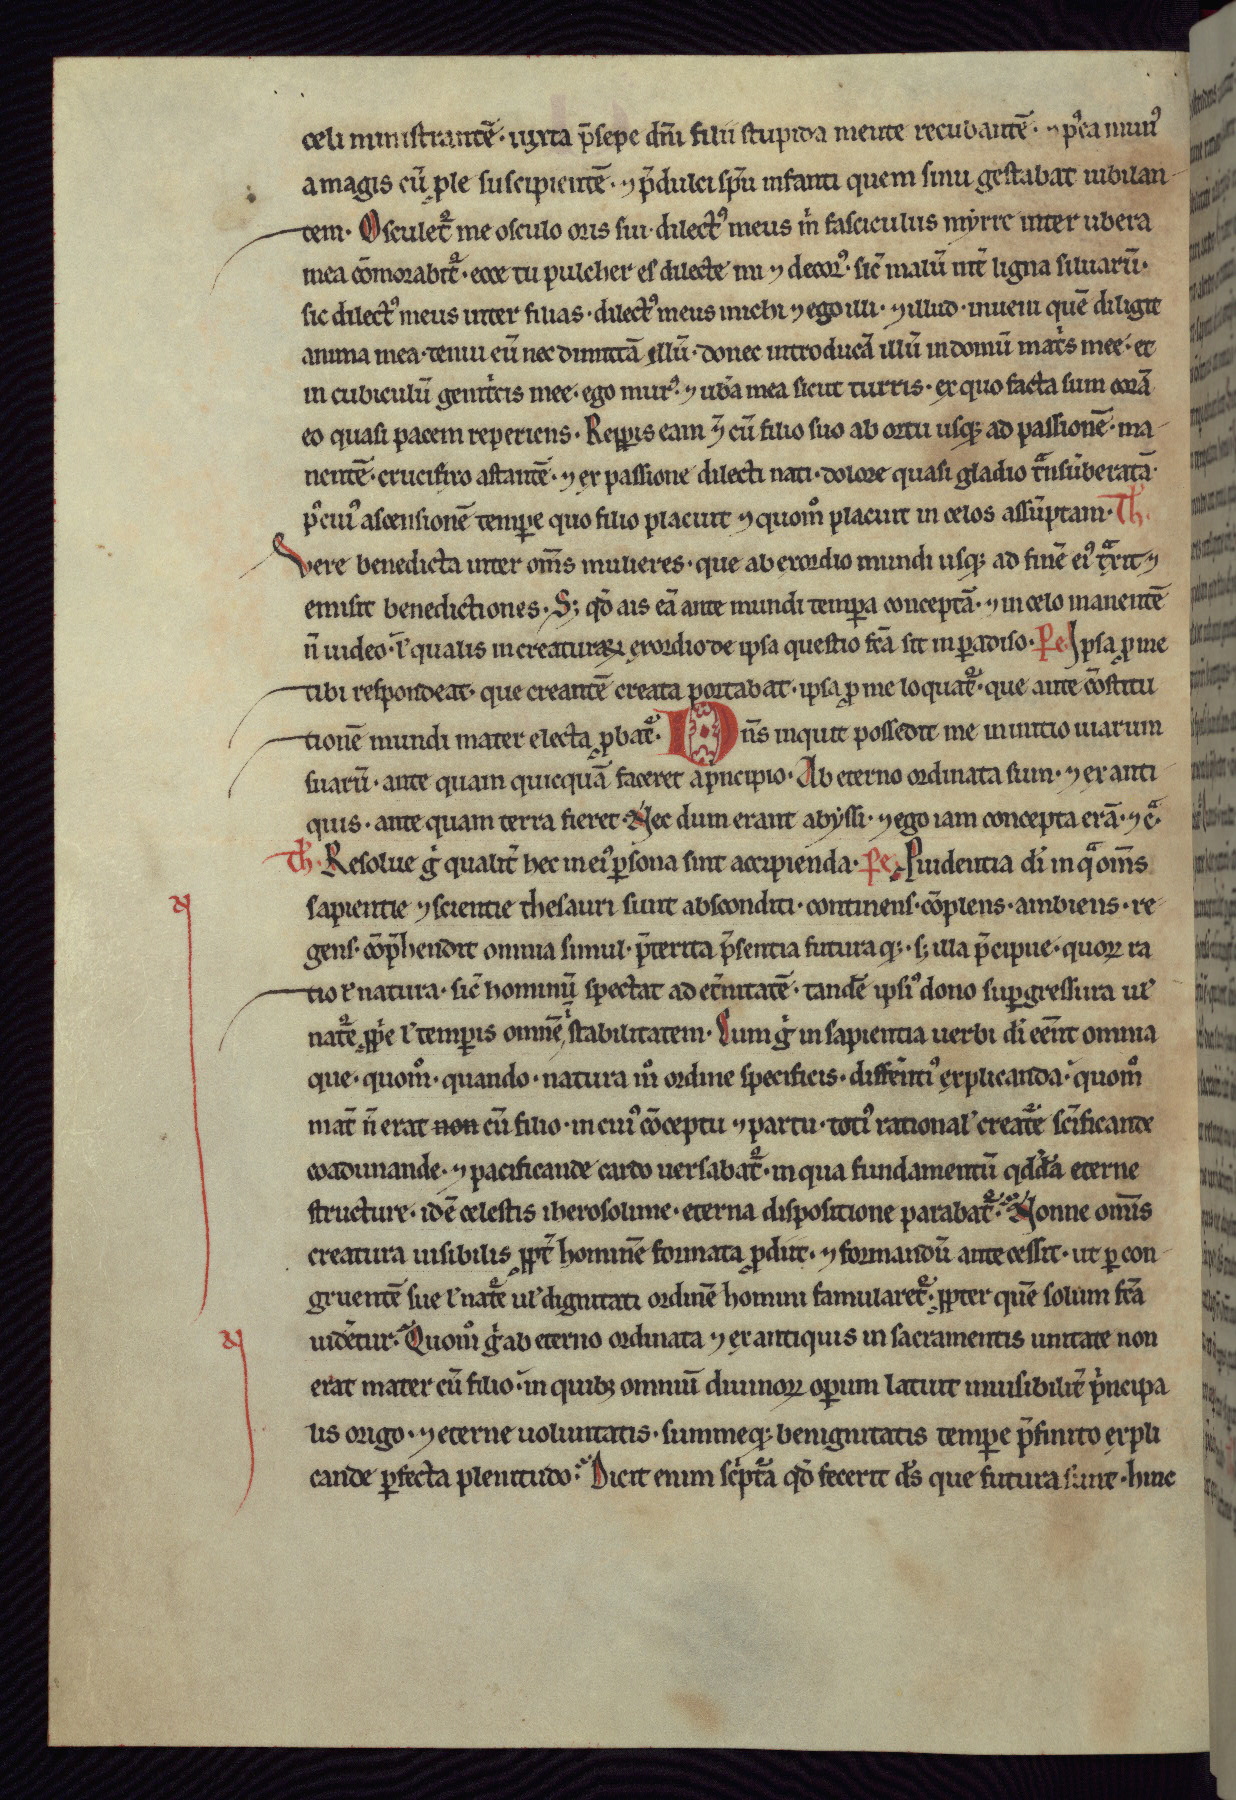 celi ministrantē· iuxta p̄sepe dn̄i filii stupida mente recubantē· ⁊ p⁹ea mun⁹
a magis cū ꝓle suscipientē· ⁊ p̄dulci sp̄u infanti quem sinu gestabat iubilan
tem· Osculet᷑ me osculo oris sui· dilect⁹ meus m̄ fasciculus myrre inter ubera
mea cōmorabit᷑· ecce tu pulcher es dilecte mi ⁊ decor⁹· sic̄ malū int̄ ligna siluarū·
sic dilect⁹ meus inter filias· dilect⁹ meus michi ⁊ ego illi· ⁊ illud· inueni quē diligit
anima mea· tenui eū nec dimittā illū· donec introducā illū in domū mat̄s mee· et
in cubiculū genit̄cis mee· ego mur⁹· ⁊ ub̄a mea sicut turris· ex quo facta sum corā
eo quasi pacem reperiens· Repp̱is eam cū filio suo ab ortu usq; ad passionē· ma
nentē· crucifixo astantē· ⁊ ex passione dilecti nati· dolore quasi gladio t̄nsūberatā·
p⁹ cui⁹ ascensionē temꝑe quo filio placuit ⁊ quom̊ placuit in celos assūptam· Th̄·
Vere benedicta inter om̄s mulieres· que ab exordio mundi usq; ad finē ei⁹ t̄xit ⁊
emisit benedictiones· S; qđ ais eā ante mundi temꝑa conceptā· ⁊ in celo manentē
n̄ uideo· ł qualis in creaturaꝝ exordio de ipsa questio fc̄a sit in ꝑadiso· Pe· Ipsa ꝓ me
tibi respondeat· que creantē creata portabat· ipsa ꝓ me loquat᷑· que ante cōstitu
tionē mundi mater electa ꝓbat᷑· Dn̄s inquit possedit me in initio uiarum
suarū· ante quam quicquā faceret a pͥncipio· Ab eterno ordinata sum· ⁊ ex anti
quis· ante quam terra fieret· Nec dum erant abyssi· ⁊ ego iam concepta erā· ⁊ c̄·
Th̄· Resolue gͥ qualit̄ hec in ei⁹ ꝑsona sint accipienda· Pe· Puidentia di͞ in qͣ om̄s
sapientie ⁊ scientie thesauri sunt absconditi· continens· cōplens· ambiens· re
gens· cōp̄hendit omnia simul· p̄terita p̄sentia futuraq;· s; illa p̄cipue· quoꝝ ra
tio ł natura· sic̄ hominū spectat ad et̄nitatē· tandē ipsi⁹ dono suꝑgressura ul̄
nat̄e ꝓp̄e ł temꝑis omnē stabilitatem· Cum gͥ in sapientia uerbi di͞ eēnt omnia
que· quom̊· quando· natura m̊ ordine specificis· diffēnti⁹ explicanda· quom̊
mat̄ n̄ erat non cū filio· in cui⁹ cōceptu ⁊ partu· toti⁹ rational̄ creat̄e sc̄ificande
coadunande· ⁊ pacificande cardo uersabat᷑· in qua fundamentū qd̄d̄a eterne
structure· idē celestis iherosolime· eterna dispositione parabat᷑· Nonne om̄s
creatura uisibilis ꝓpt̄ hominē formata ꝓdiit· ⁊ formandū antecessit· ut ꝑ con
gruentē sue ł nat̄e ul̄ dignitati ordinē homini famularet᷑· ꝓpter quē solum fc̄a
uidētur· Quom̊ gͥ ab eterno ordinata ⁊ ex antiquis in sacramentis unitate non
erat mater cū filio· in quibꝫ omniū diuinoꝝ oꝑum latuit inuisibilit̄ pͥncipa
lis origo· ⁊ eterne uoluntatis· summeq; benignitatis temꝑe p̄finito expli
cande ꝑfecta plenitudo· Dicit enim sc̄pt̄a qđ fecerit d̄s que futura sunt· hinc